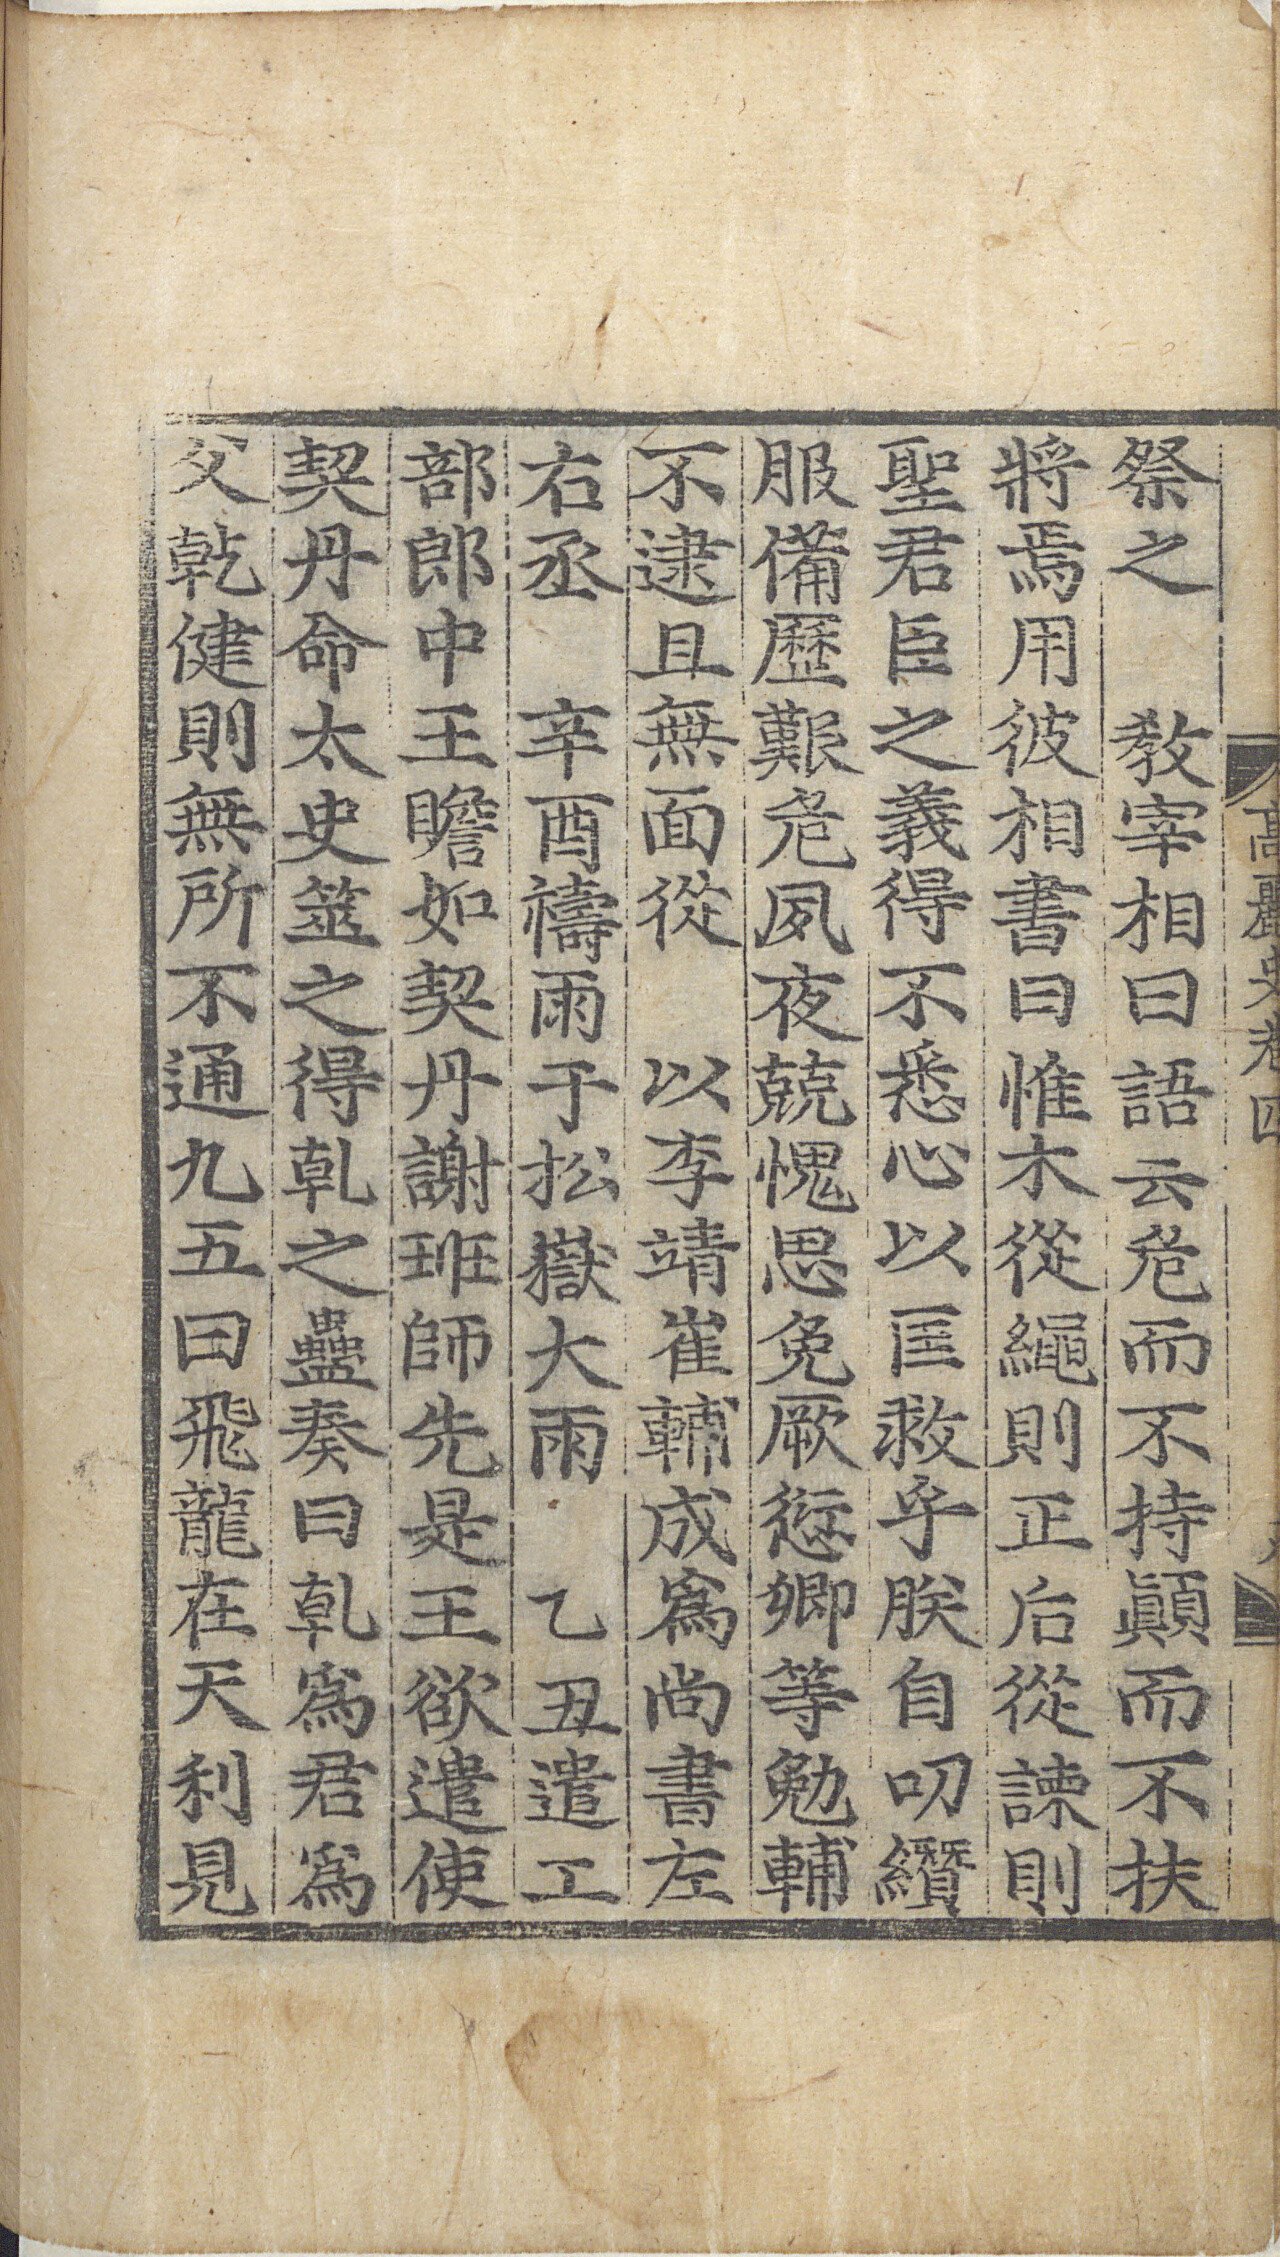 高麗史卷四
祭之　教宰相曰語云危而不持顚而不扶
將焉用彼相書曰惟木從繩則正后從諫則
聖君臣之義得不悉心以匡救乎朕自叨纘
服備歷艱危夙夜兢愧思免厥愆卿等勉輔
不逮且無面從　以李靖崔輔成爲尚書左
右丞　辛酉禱雨于松嶽大雨　乙丑遣工
部郎中王瞻如契丹謝班師先是王欲遣使
契丹命太史筮之得乹之蠱奏曰乹爲君爲
父乾健則無所不通九五曰飛龍在天利見